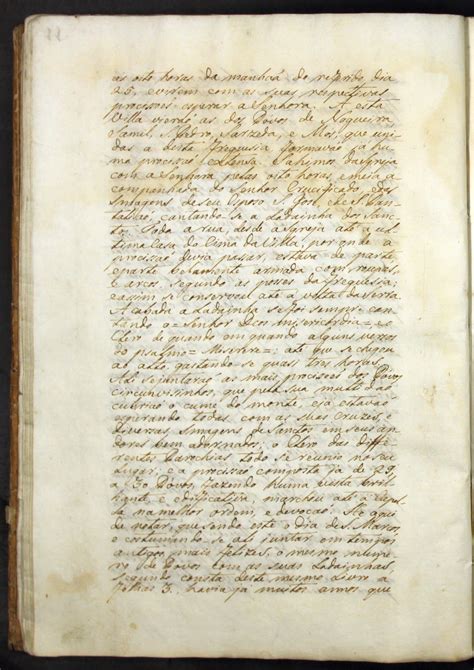 as oito horas da manhãa do referido dia
25, e virem com as suas respectivas
procissoes esperar a Senhora. A esta
Villa vierão as dos Povos de Nogueira
Samil, S. Pedro, Sarzeda, e Mós, que uni
das a desta Freguesia formavão já hu
ma procissao extensa. Sahimos da Igreja
com a Senhora pelas oito horas e meia a
companhada do Senhor Crucificado, e das
Imagens de seu Esposo S. José, e de S. Pan
talião, cantando-se a Ladainha dos Sanc
tos. Toda a rua, desde a Igreja até a ul
tima Casa do Cima da Villa, por onde a
procissão devia passar, estava de parte
a parte belamente armada com roupas,
e arcos, segundo as posses da Freguesia;
e assim se conservou até a volta da Serra.
Acabada a Ladainha se foi sempre can
tando a = Senhor Deos Misericordia = e o
Clero de quando em quando alguns versos
do psalmo = Miserere =; até que se chegou
ao alto, gastando-se quasi tres horas.
Ali se juntarão as mais procissoes dos Povos
circunvisinhos, que pela sua multidão
cubrião o cume do monte, e já estavão
esperando todas com as suas Cruzes, e
diversas Imagens de Sanctos em seus an
dores bem adornados; o Clero das diffe
rentes Parochias todo se reunio no seu
lugar; e a procissão composta já de 29,
a 30 Povos, fazendo huma vista bril
liante, e edificativa, marchou até à Capel
la na melhor ordem, e devoção. He aqui
de notar, que sendo este o dia de S. Marcos,
e costumando-se ali juntar em tempos
antigos, mais felizes, o mesmo nume
ro de Povos com as suas Ladainhas,
segundo consta deste mesmo Livro a
folhas 3, havia já muitos annos que